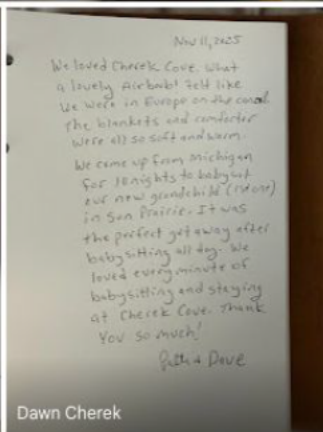 Nov 11, 2025
We loved Cherek Cove. What
a lovely Airbnb! Felt like
we were in Europe on the canal.
The blankets and comforter
were all so soft and warm.
We came up from Michigan
for 10 nights to babysit
our new grandchild (1st one)
in Sun Prairie. It was
the perfect get away after
babysitting all day. We
loved every minute of
babysitting and staying
at Cherek Cove. Thank
You so much!
& Dave
Dawn Cherek